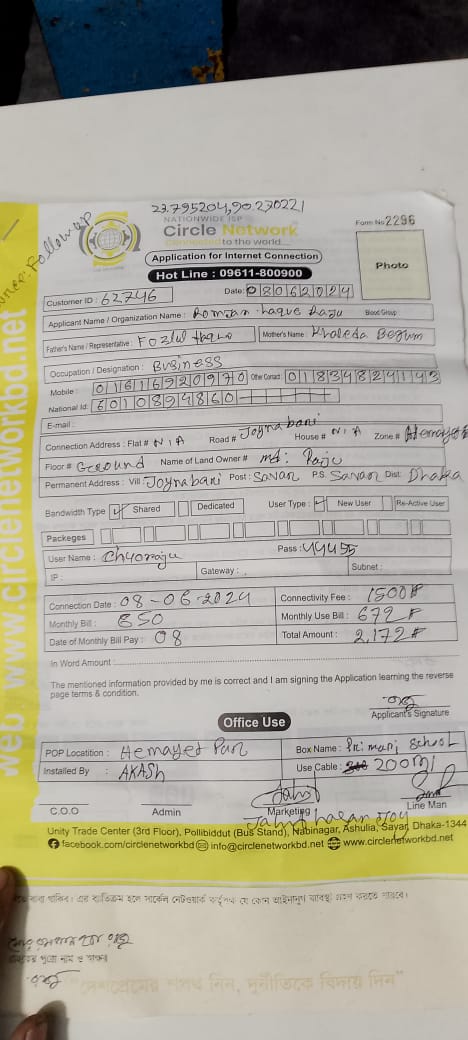 23.795204,90.270221
NATIONWIDE ISP
Circle Network
Connected to the world....
Form No 2296
Application for Internet Connection
Hot Line : 09611-800900
Photo
Follow up
Customer ID : 62746
Date: 08062024
Applicant Name / Organization Name : Haque Raju Blood Group
Father's Name / Representative : Fozlul Haque Mother's Name : Khaleda Begum
Occupation / Designation : Business
Mobile : 01616920970 Other Contact : 01834824143
National Id: 6010894860
E-mail :
Connection Address : Flat # N/A Road # Joynabari House # N/A Zone # Hemayet
Floor # Ground Name of Land Owner # md: Raju
Permanent Address : Vill Joynabari Post : Savar P.S. Savar Dist: Dhaka
Bandwidth Type Shared Dedicated User Type : New User Re-Active User
Packeges
User Name : Chyoraju Pass : 44455
IP : Gateway : Subnet :
Connection Date : 08-06-2024 Connectivity Fee : 1500
Monthly Bill : 850 Monthly Use Bill : 672
Date of Monthly Bill Pay : 08 Total Amount : 2,172
In Word Amount :
The mentioned information provided by me is correct and I am signing the Application learning the reverse
page terms & condition.
Applicant's Signature
Office Use
POP Locatition : Hemayet Pur Box Name : Primary School
Installed By : AKASH Use Cable : 200m
C.O.O Admin Marketing Line Man
Jahid hasan Joy
Unity Trade Center (3rd Floor), Pollibiddut (Bus Stand), Nabinagar, Ashulia, Savar, Dhaka-1344
facebook.com/circlenetworkbd info@circlenetworkbd.net www.circlenetworkbd.net
web : www.circlenetworkbd.net
থাকিব। এর ব্যতিক্রম হলে সার্কেল নেটওয়ার্ক কর্তৃপক্ষ যে কোন আইনানুগ ব্যবস্থা গ্রহণ করতে পারবে।
পুরো নাম ও স্বাক্ষর
"দেশপ্রেমের শপথ নিন, দুর্নীতিকে বিদায় দিন"